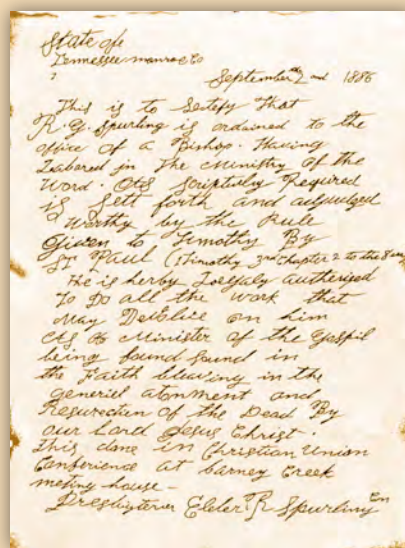 State of
Tennessee monroe Co
September 2nd 1886
This is to Sertefy that
R. G. Spurling is ordained to the
office of a Bishop. Having
Labored in The ministry of the
Word. As Scriptuly Required
is sett forth and adjudged
Worthy by the Rule
Given to Timothy By
St Paul (1 Timothy 3rd Chapter 2 to the 8
He is herby authorised
To Do all the work that
May on him
As a Minister of the Gospil
being found Sound in
the Faith bleaving in the
generel atonment and
Resurection of the Dead By
our Lord Jesus Christ.
This done in Christian Union
Conference at Barney Creek
meting house -
Presbyterian Elder R Spurling